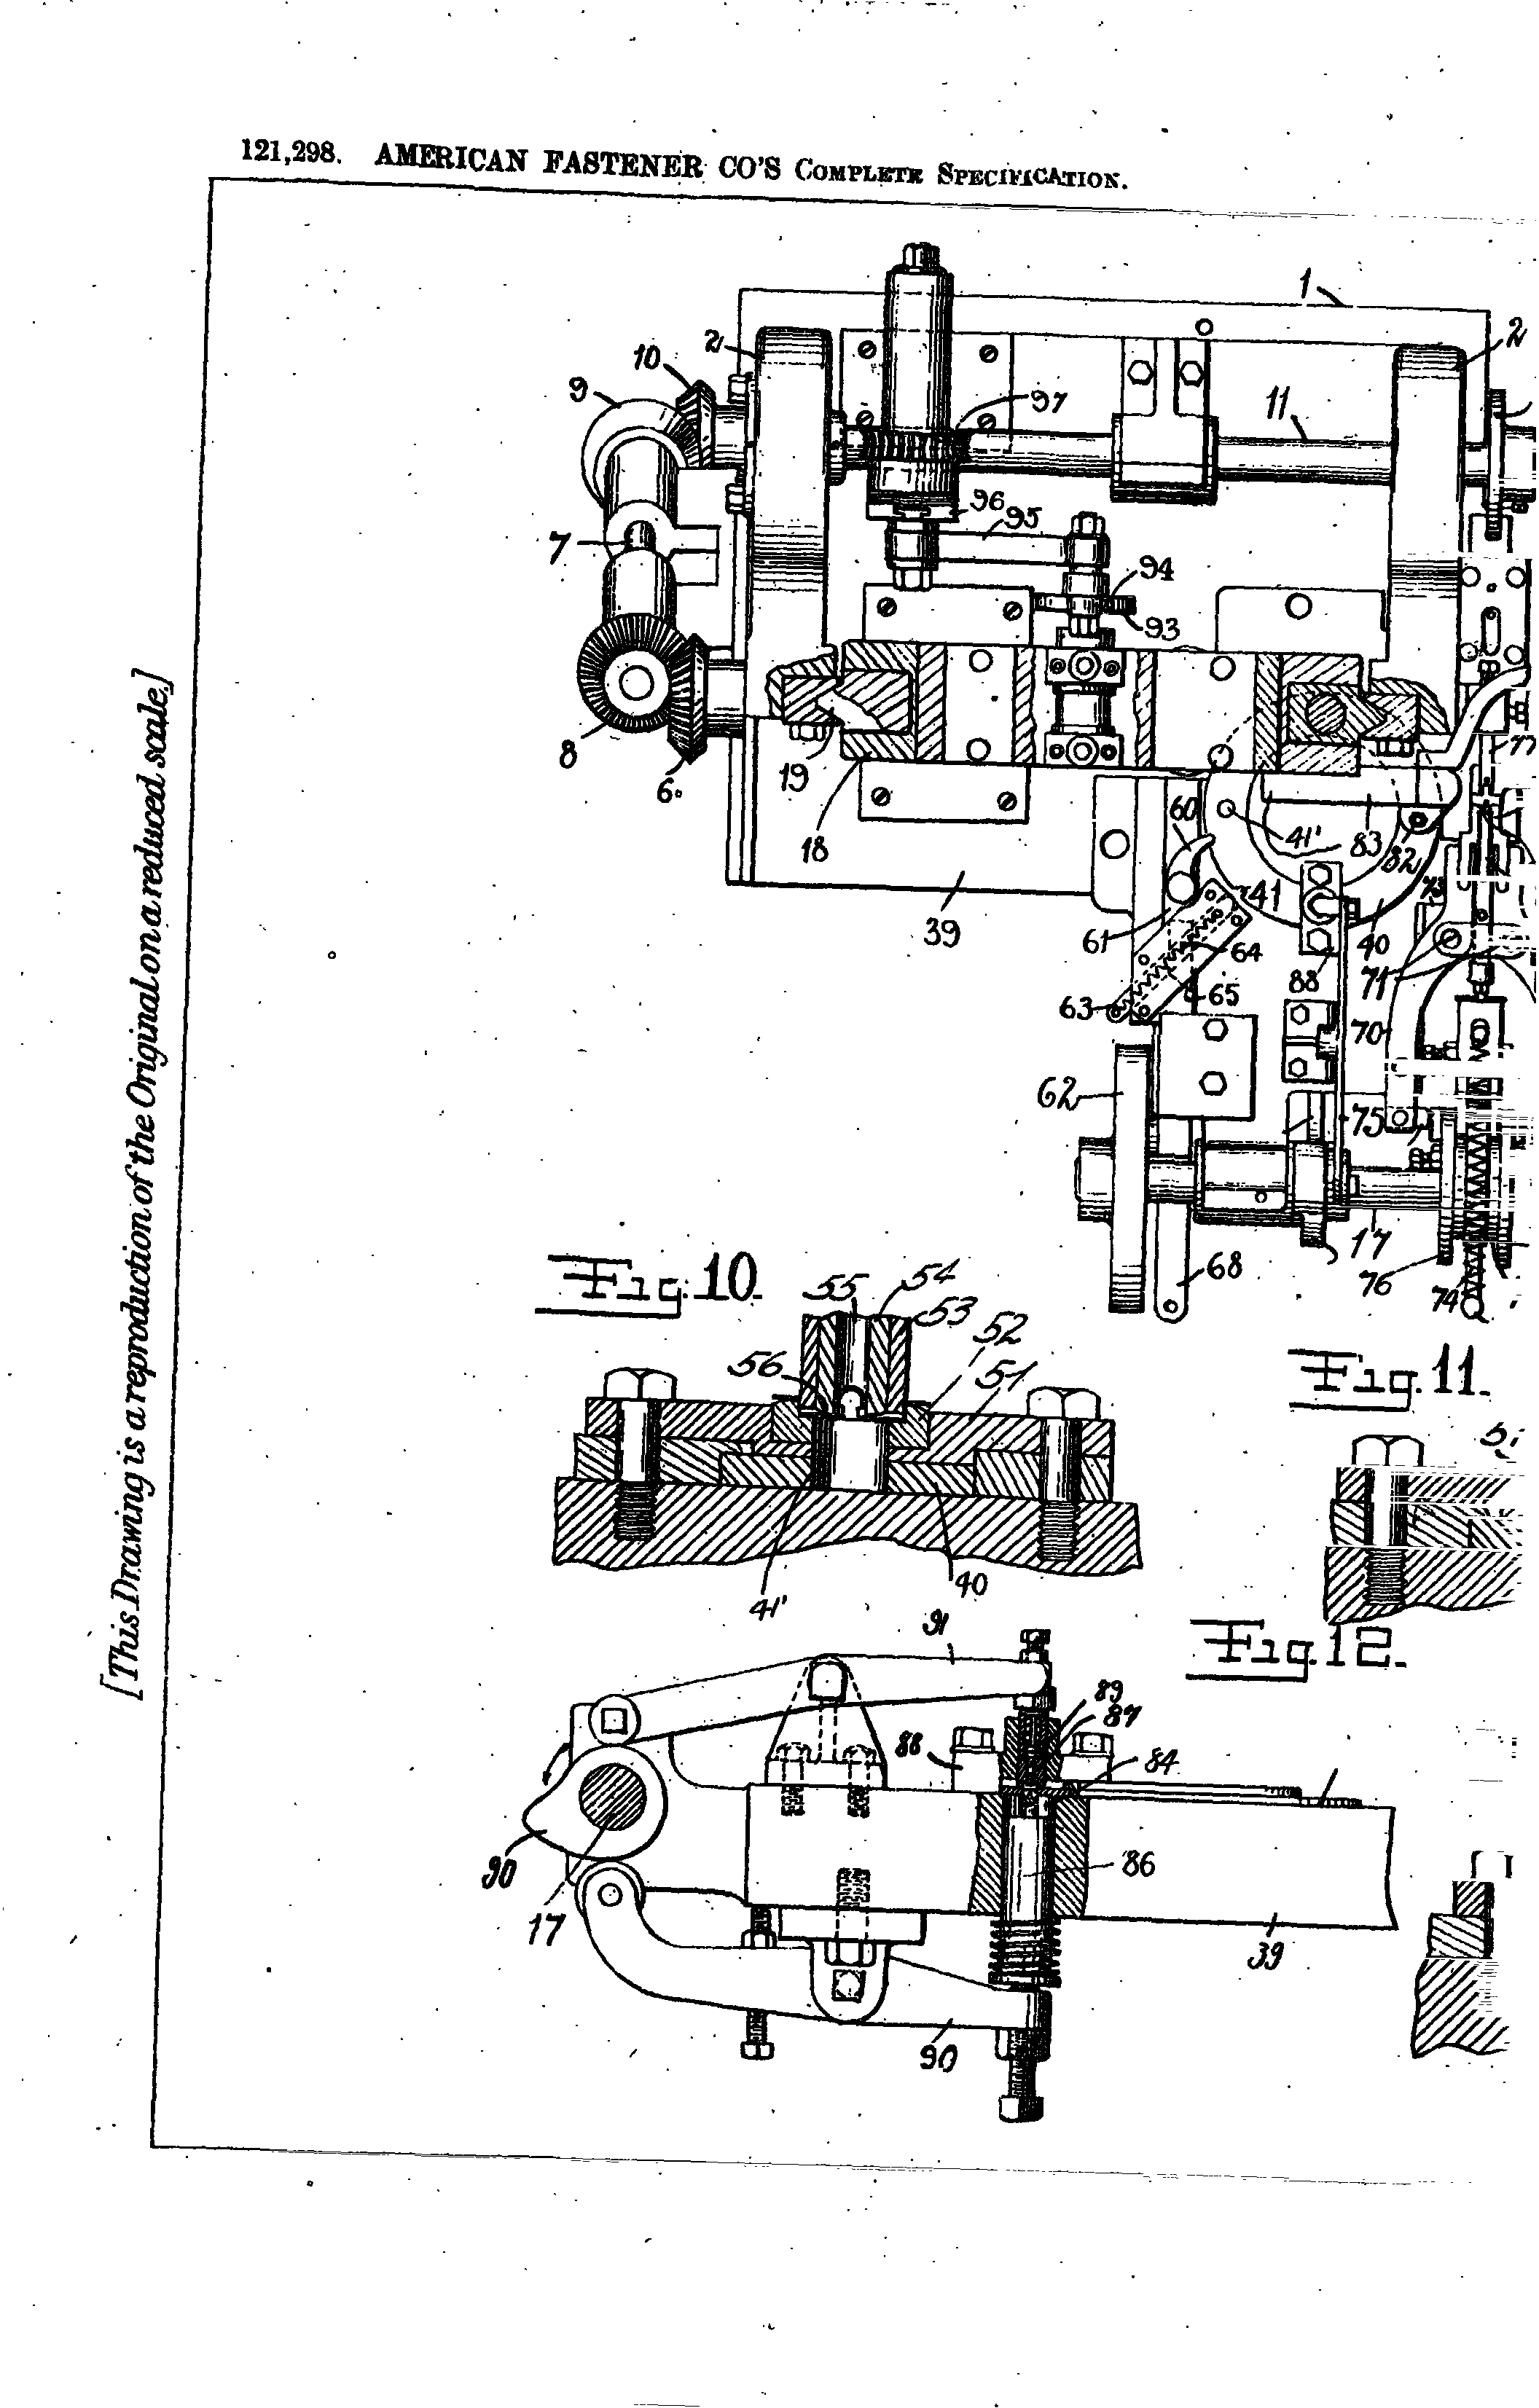 121,298. AMERICAN FASTENER CO'S COMPLETE SPECIFICATION.
[This Drawing is a reproduction of the Original on a reduced scale.]
1
2
2
10
9
97
11
96
95
7
94
93
8
6.
19
18
60
41'
83
82
73
77
39
61
41
64
40
71
88
63
65
70
62
75
17
76
74
68
Fig. 10.
55
54
53
52
51
56
41'
40
Fig. 11.
Fig. 12.
91
89
87
88
84
90
17
86
39
90